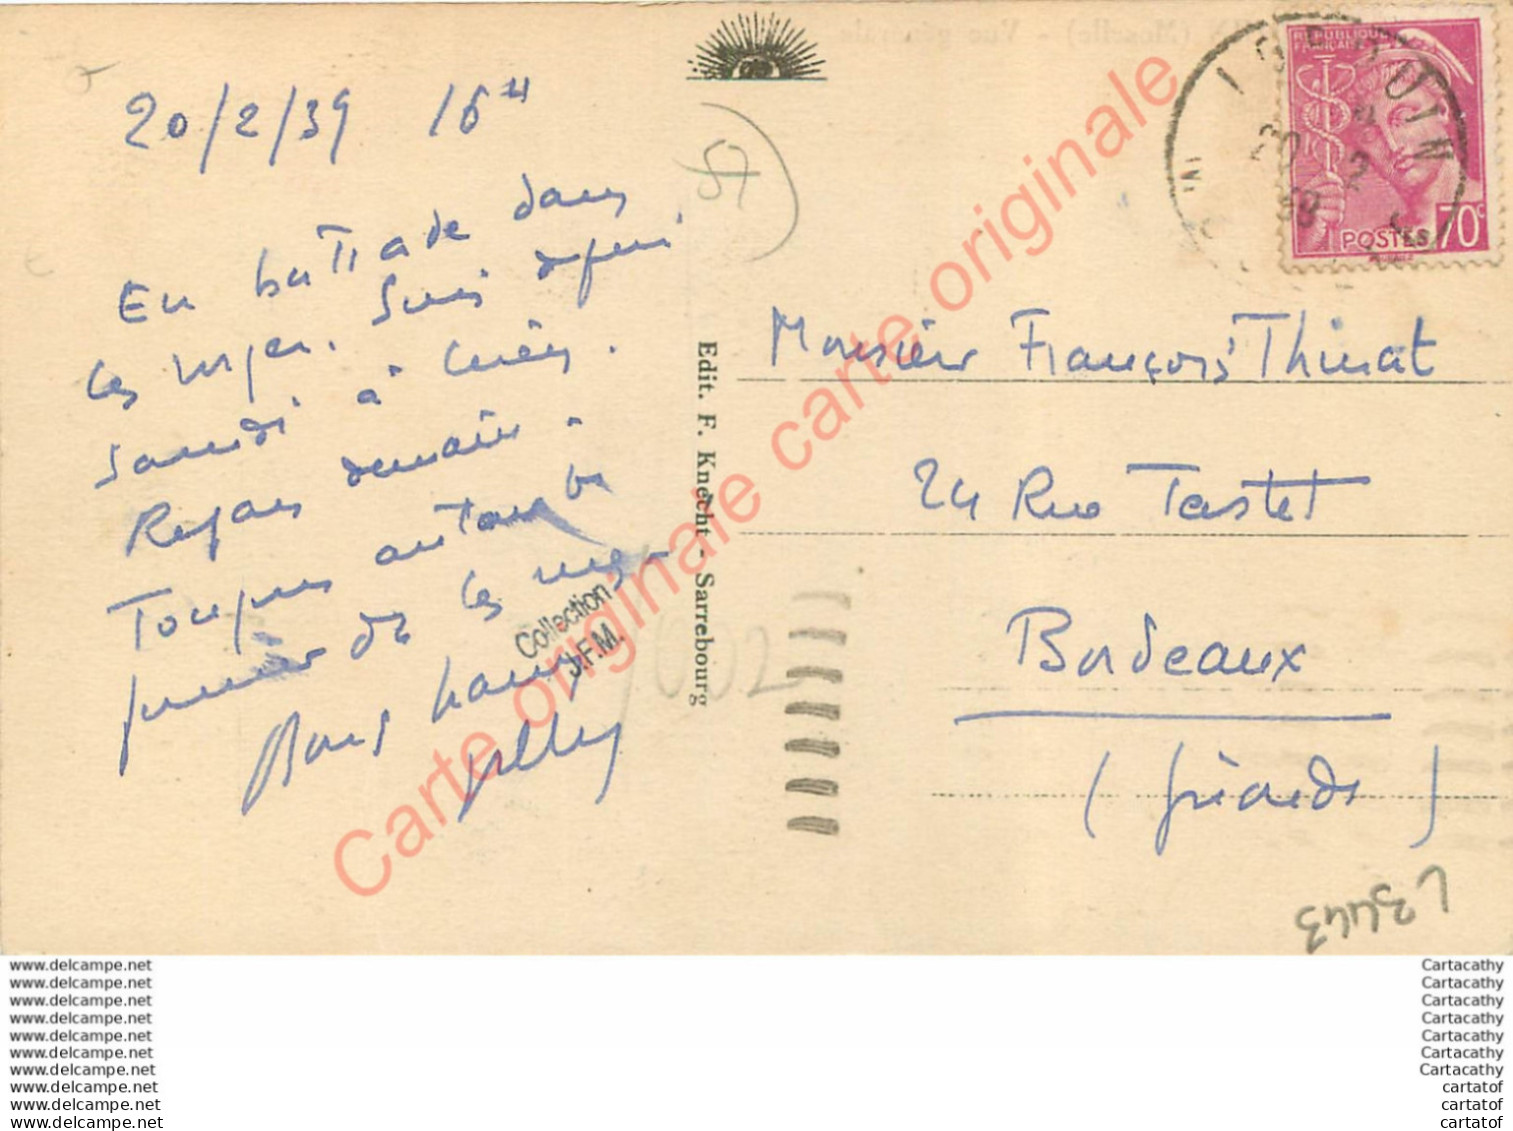 20/2/39 16H
En battrade dans
les neiges. Suis depuis
Samedi à
Repars demain.
Toujours autour de
de ces neig
Collection
J.F.M.
57
1002
Edit. F. Knecht - Sarrebourg
(Moselle) - Vue générale
RÉPUBLIQUE
FRANÇAISE
POSTES
70c
20 2
39
Monsieur François Thinat
24 Rue Tastet
Bordeaux
(Gironde)
L3443
Carte originale carte originale carte originale
www.delcampe.net
www.delcampe.net
www.delcampe.net
www.delcampe.net
www.delcampe.net
www.delcampe.net
www.delcampe.net
www.delcampe.net
www.delcampe.net
www.delcampe.net
Cartacathy
Cartacathy
Cartacathy
Cartacathy
Cartacathy
Cartacathy
Cartacathy
cartatof
cartatof
cartatof